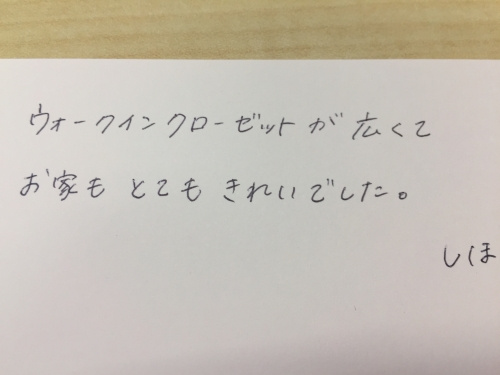 ウォークインクローゼットが広くて
お家もとてもきれいでした。
しほ